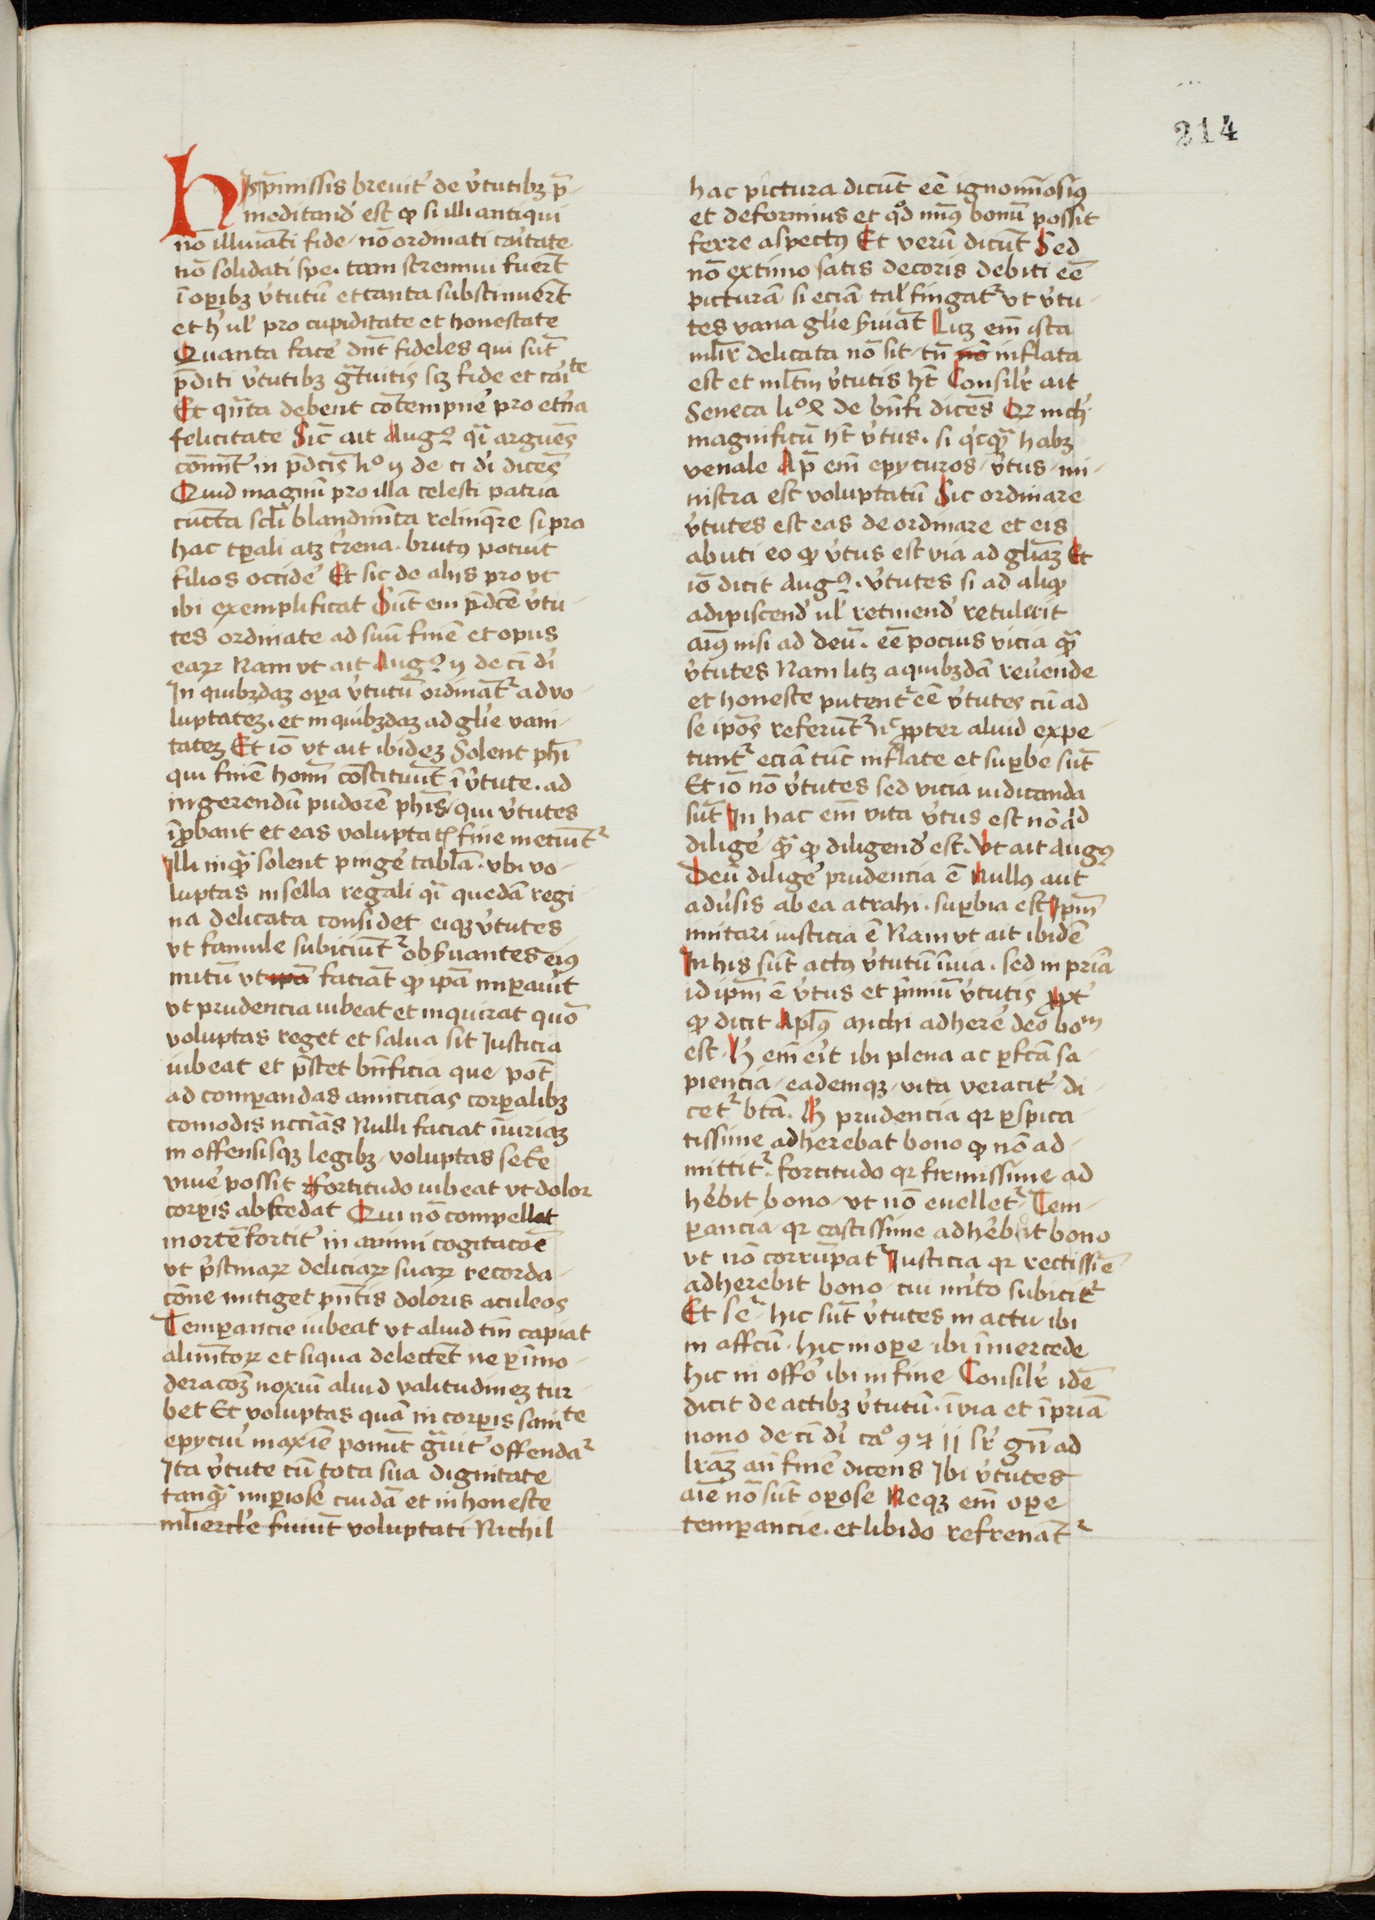 214
His p̄missis breuit᷑ de v̓tutibꝫ p̄-
meditand̓ est ꝙ si illi antiqui
nō illuīati fide nō ordīati cārtate
nō solidati spe. tam strennui fuer̄t
ī oꝑibꝫ v̓tutū et tanta substinuer̄t
et h̓ ul̓ pro cupiditate et honestate
Quanta face̓ dn̄t fideles qui sūt
p̄diti v̓tutibꝫ gͣtuitis sꝫ fide et caͥte
Et qͣnta debent cōtempne̓ pro et̓na
felicitate Sic̄ ait Augꝰ qͣi arguēs
cōmīt̓ in p̄dc̄is lͦi ij de ci dī dicēs
Quid magnū pro illa celesti patria
cūcta scl̓i blandimēta relinqͣre si pro
hac tꝑali atqꝫ t̓rena. brutꝰ potuit
filios occide̓ Et sic de alijs pro vt
ibi exemplificat Sūt em̄ p̄dc̄e v̓tu-
tes ordinate ad suū finē et opus
eaꝝ Nam vt ait Augꝰ ij de ci dī
In quibꝫdaꝫ oꝑa v̓tutū ordinātᷣ ad vo-
luptateꝫ. et in quibꝫdaꝫ ad gl̓ie vani-
tateꝫ Et iō vt ait ibideꝫ Solent phī
qui finē hōim cōstituūt ī v̓tute. ad
ingerendū pudorē phīs, qui v̓tutes
īprobant et eas voluptatꝭ fine metiūtᷣ
Illi inqͣ solent pinge̓ tabl̄a. vbi vo-
luptas in sella regali qͣi quedā regi
na delicata considet eiqꝫ v̓tutes
vt famule subiciūtᷣ obs̓uantes eiꝰ
nutū vt faciāt ꝙ ip̄a imꝑauit̄
vt prudencia iubeat et inquirat quō
voluptas reget et salua sit Iusticia
iubeat et p̄stet bn̄ficia que pōt
ad comꝑandas amicicias corꝑalibꝫ
comodis nccīas Nulli faciat iniuriaꝫ
in offensisqꝫ legibꝫ. voluptas secͣe
viue̓ possit Fortitudo iubeat vt dolor
corꝑis abscedat Qui nō compellat
mortē fortit᷑ in animi cogitacōe
vt p̓stinaꝝ deliciaꝝ suaꝝ recorda-
cōne mitiget pn̄tis doloris aculeos
Temperancie iubeat vt aliud tm̄ capiat
alimētoꝝ et si qua delectēt ne ꝑ īmo-
deracōꝫ noxiū aliud valitudineꝫ tur-
bet Et voluptas quā in corꝑis saniͭte
epycurī maxīe ponūt gͣuit᷑ offendaᷣ
Ita v̓tute cū tota sua dignitate
tanqͣ imꝑiose cuidā et inhoneste
ml̓iercl̓e s̓uiūt voluptati Nichil
hac pictura dicūt eē ignomīosiꝰ
et deformius et qd̊ minꝰ bonū possit
ferre aspectꝰ Et verū dicūt Sed
nō extimo satis decoris debiti eē
picturā si eciā tal̓ fingatᷣ vt v̓tu-
tes vana gl̓ie s̓uiāt Lꝫ em̄ ista
ml̓ir̓ delicata nō sit. tn̄ inflata
est et ml̄tm v̓tutis hꝫ Consilr̓ ait
Seneca lͦi x de bn̄fi dicēs Qꝛ nich̓
magnificū hꝫ v̓tus. si qͥcqͣ habꝫ
venale Ap̄ em̄ epycuros v̓tus mi-
nistra est voluptatū Sic ordinare
v̓tutes est eas deordinare et eis
abuti eo ꝙ v̓tus est via ad gl̓iaꝫ Et
iō dicit Augꝰ. v̓tutes si ad aliꝙ
adipiscend̓ ul̓ retinend̓ retulerit
aīꝰ nisi ad deū. eē pocius vicia qͣ
v̓tutes Nam lꝫ a quibꝫdā reue̓nde
et honeste putentᷣ eē v̓tutes cū ad
se ip̄os referūtᷣ nͨ ꝓpter aliud expe-
tuntᷣ eciā tūc inflate et suꝑbe sūt
Et iō nō v̓tutes sed vicia iudicanda
sūt In hac em̄ vita v̓tus est nō ad
dilige̓ qͣ ꝙ diligend̓ est. Vt ait Augꝰ
Deū dilige̓ prudencia ē Nullꝰ aut̄
adu̓sis ab ea atrahi. suꝑbia est Ip̄m
imitari iusticia ē Nam vt ait ibidē
In his sūt actꝰ v̓tutū ī via. sed in priā
id ip̄m ē v̓tus et p̄miū v̓tutis ꝓpt̓
ꝙ dicit Apl̄ꝰ michi adhere̓ deo boᵐ
est. H̓ em̄ eīt ibi plena ac ꝑfc̄a sa-
piencia. eademqꝫ vita veracit᷑ di-
cetᷣ btā. H̓ prudencia qꝛ ꝑspica-
tissime adherebat bono ꝙ nō ad-
mittitᷣ. fortitudo qꝛ firmissime ad-
he̓bit bono. vt nō euelletᷣ. Tem-
ꝑancia. qꝛ castissime adhe̓bit bono
vt nō corrūpatᷣ Iusticia qꝛ rectissīe
adherebit bono cui mīto subicitᷣ
Et seᷣ hic sūt v̓tutes in actu ibi
in affc̄u. hic in oꝑe ibi ī mercede
hic in offō ibi in fine Consilr̓ idē
dicit de actibꝫ v̓tutū. ī via et ī priā
nono de ci dī ca̓ 9 ⁊ ij sr̓ gn̄ ad
lr̄aꝫ an̄ finē dicens Ibi v̓tutes
aīe nō sūt oꝑose Neqꝫ em̄ oꝑe
temꝑancie. et libido refrenātᷣ